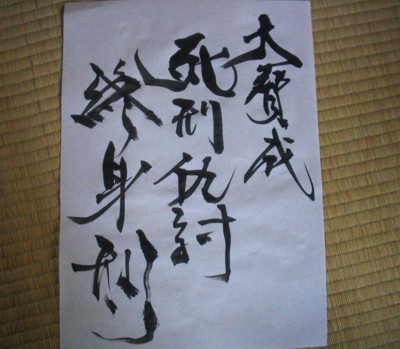 大賛成
死刑仇討
終身刑